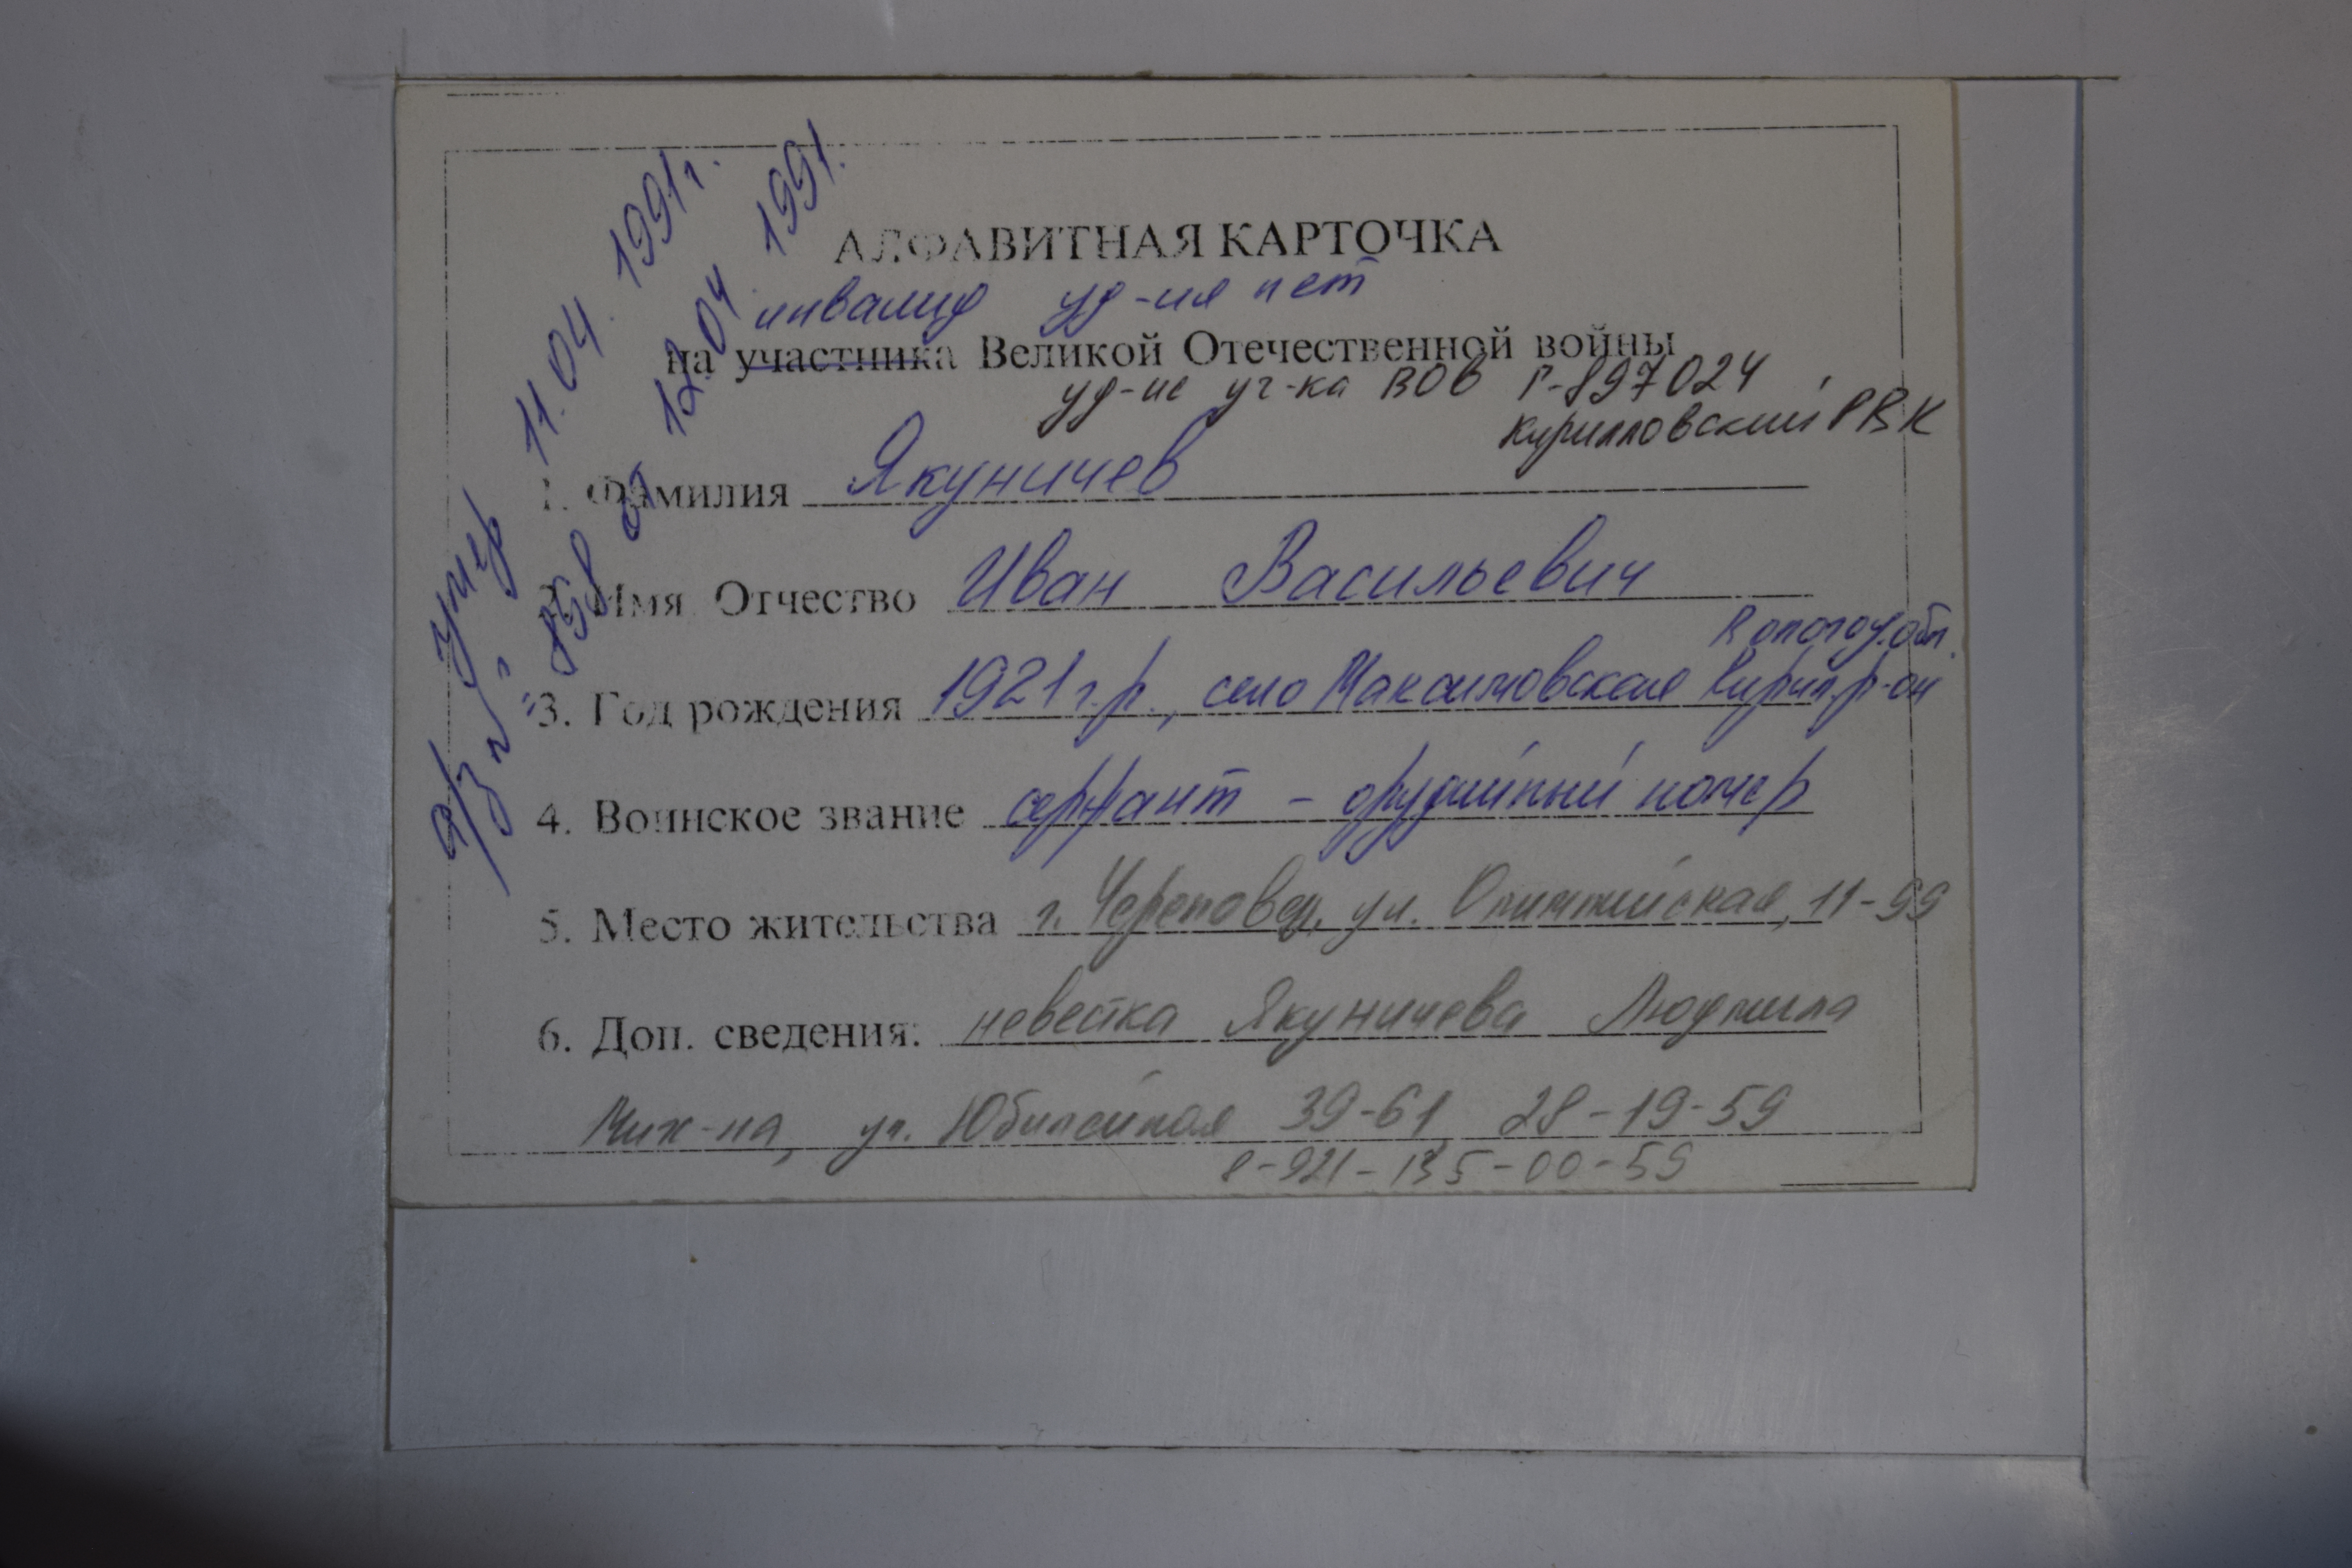 АЛФАВИТНАЯ КАРТОЧКА
инвалид уд-ия нет
на участника Великой Отечественной войны
уд-ие уч-ка ВОВ Г-897024
Кирилловский РВК
1. Фамилия Якуничев
2. Имя Отчество Иван Васильевич
Вологод. обл.
3. Год рождения 1921 г.р., село Максимовское Кирил. р-он
4. Воинское звание сержант - орудийный номер
5. Место жительства г. Череповец, ул. Олимпийская, 11-99
6. Доп. сведения: невестка Якуничева Людмила
Мих-на, ул. Юбилейная 39-61 28-19-59
8-921-135-00-59
умер 11.04.1991г.
а/з № 858 от 12.04.1991.